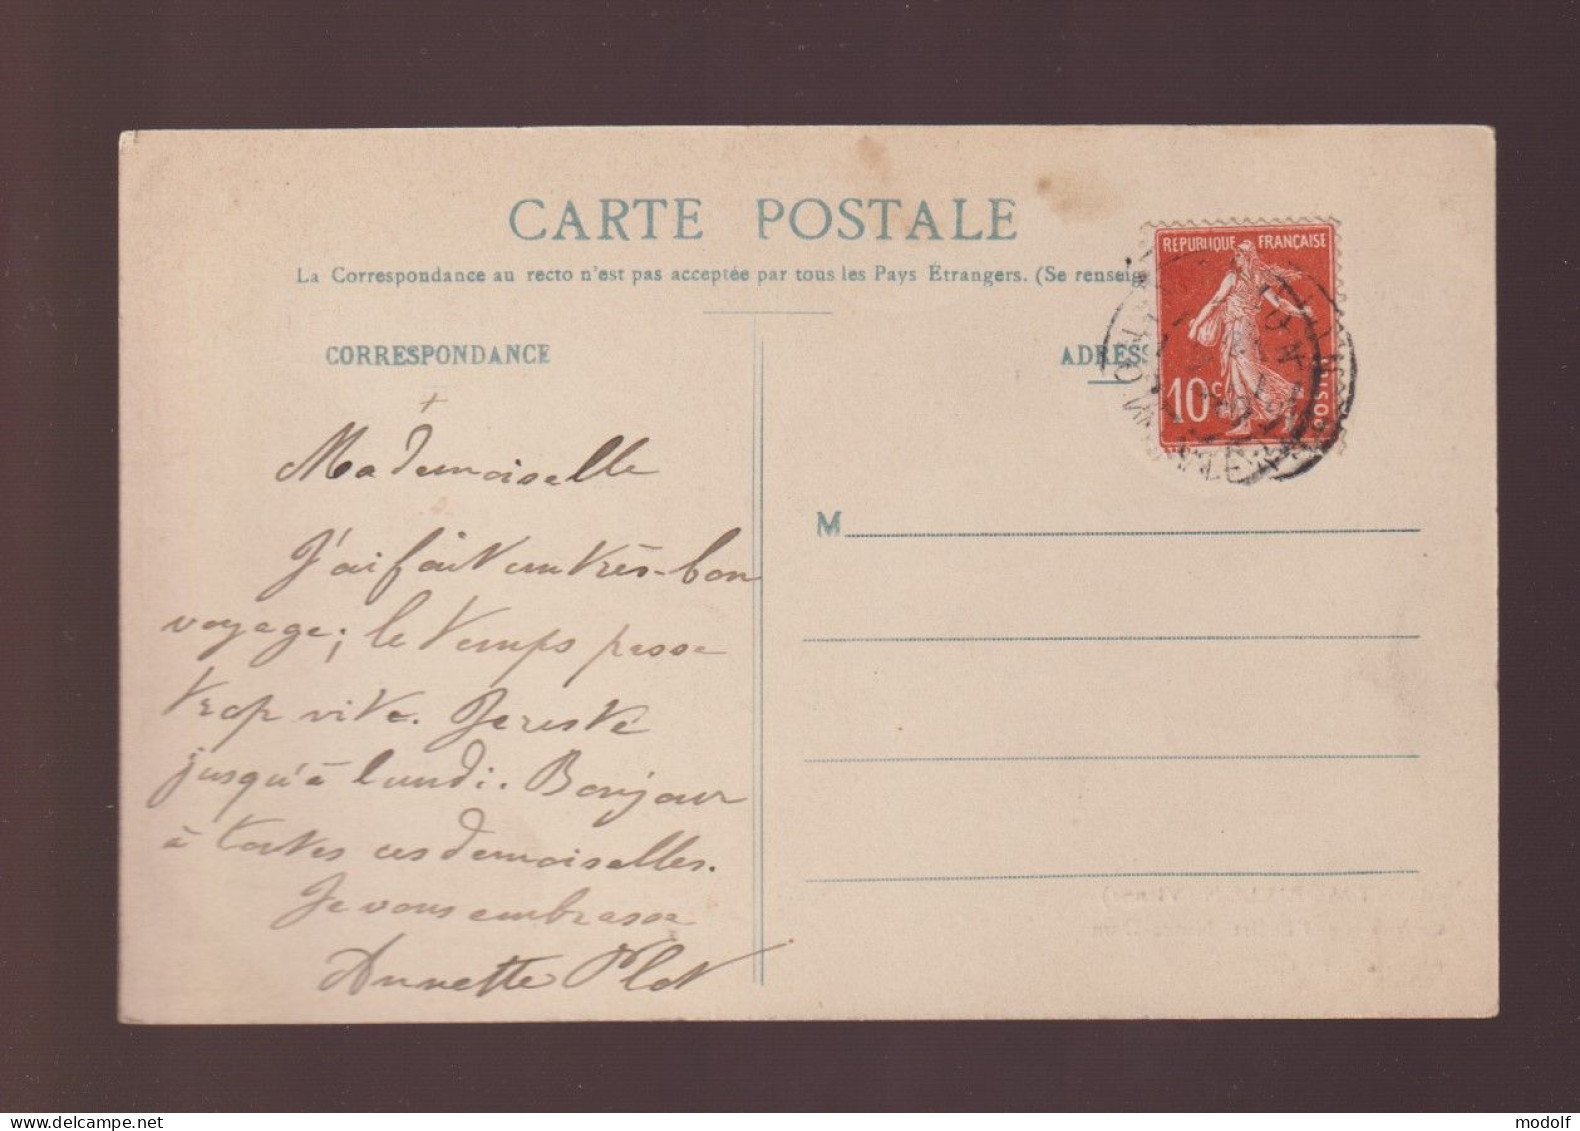 CARTE POSTALE
La Correspondance au recto n'est pas acceptée par tous les Pays Étrangers. (Se renseig
CORRESPONDANCE
ADRESS
REPUBLIQUE FRANÇAISE
10c
POSTES
M
+
Mademoiselle
J'ai fait un très-bon
voyage; le temps passe
trop vite. Je reste
jusqu'à lundi. Bonjour
à toutes ces demoiselles.
Je vous embrasse
Annette Plot
modolf